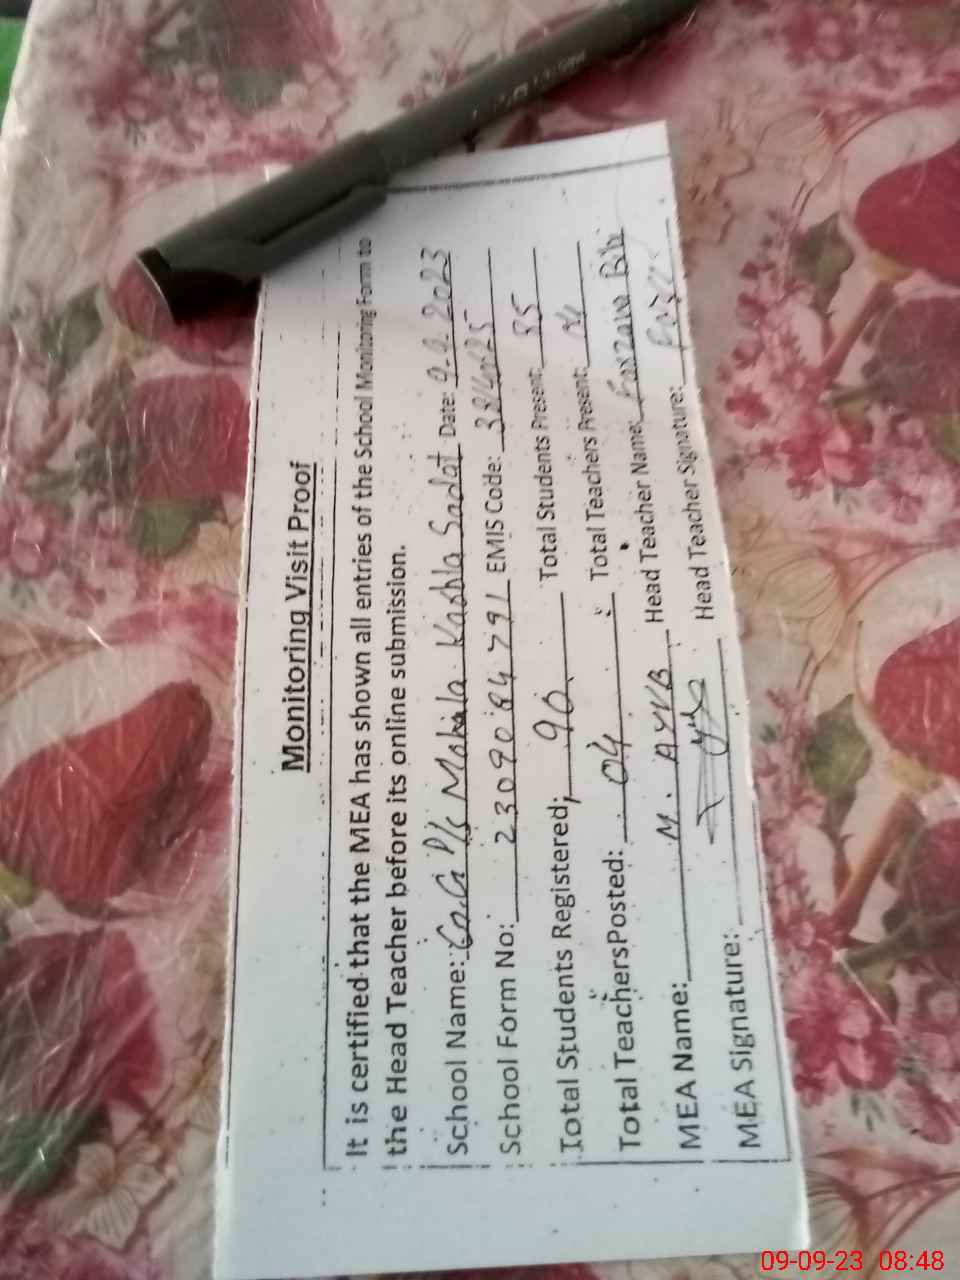 Monitoring Visit Proof
It is certified that the MEA has shown all entries of the School Monitoring Form to
the Head Teacher before its online submission.
School Name: G.G P/S Mohala Kachla Sadat Date: 9.9.2023
School Form No: 2309084791 EMIS Code:
Total Students Registered; 90 Total Students Present: 85
Total Teachers Posted: 04 Total Teachers Present: 04
MEA Name: M. AYUB Head Teacher Name: Bibi
MEA Signature: Head Teacher Signature:
09-09-23 08:48